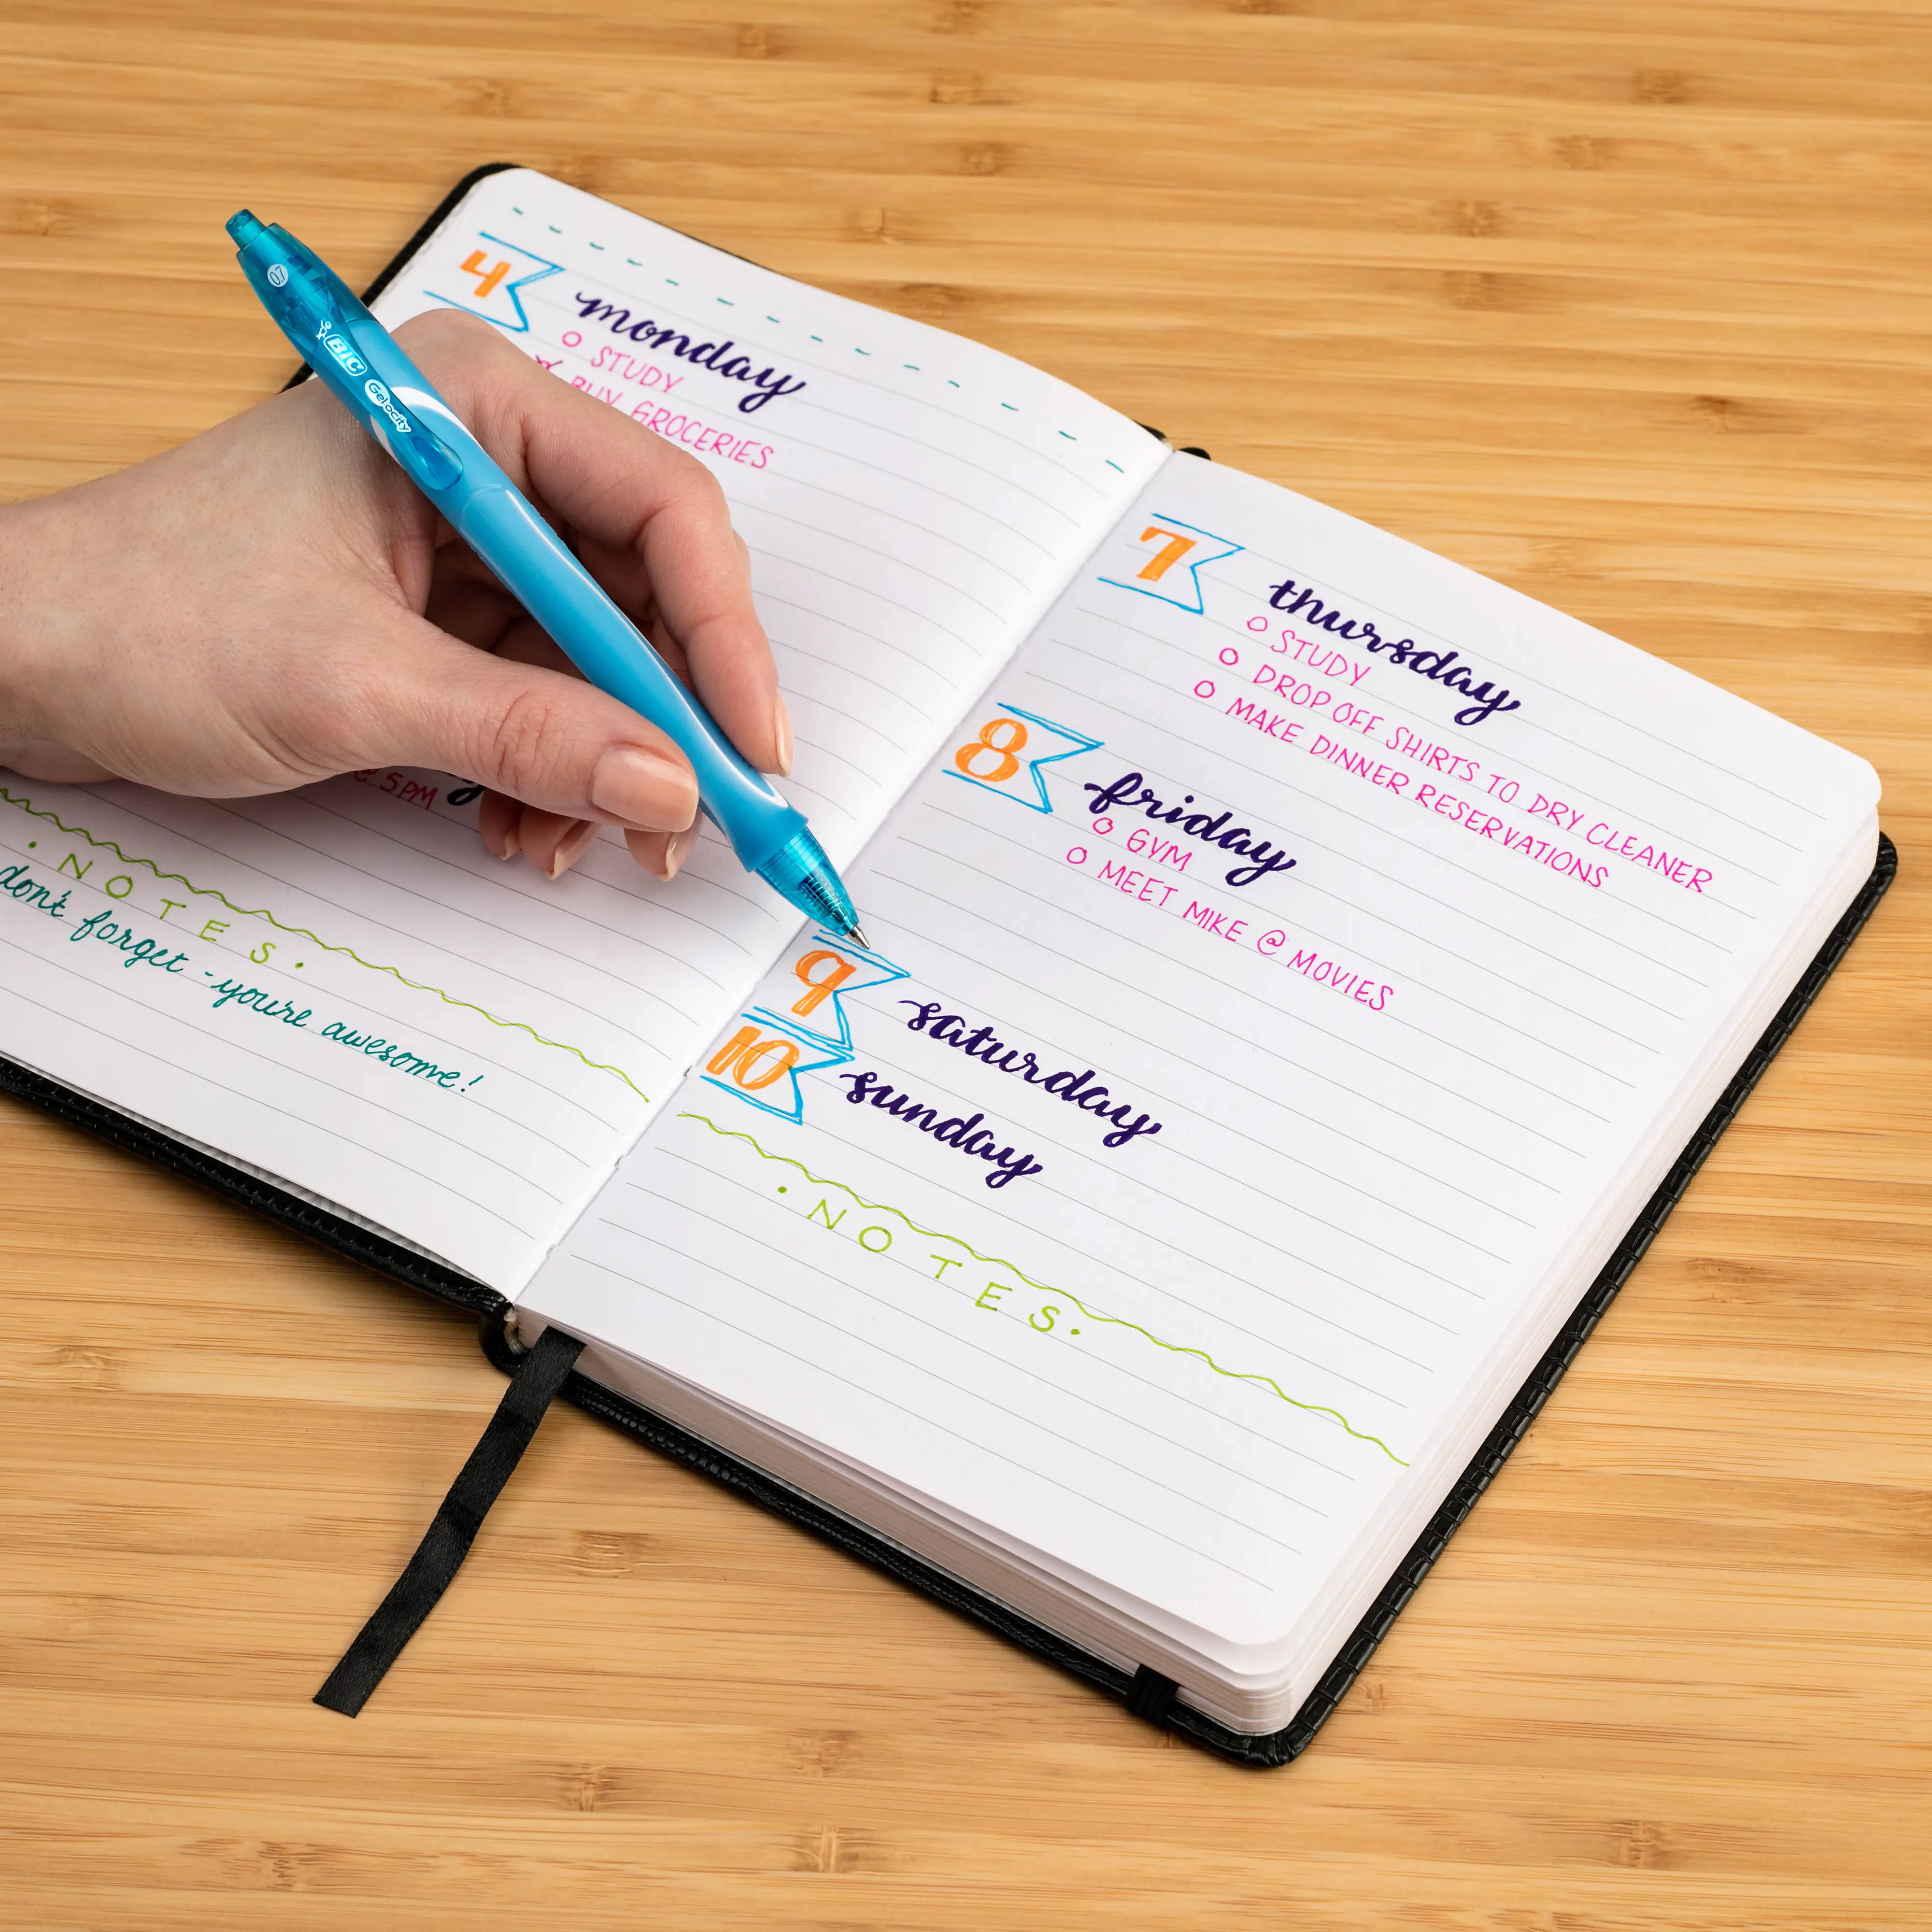 0.7
BIC
Gelocity
4
monday
STUDY
BUY GROCERIES
@ 5PM
• NOTES •
don't forget - you're awesome!
7
thursday
STUDY
DROP OFF SHIRTS TO DRY CLEANER
MAKE DINNER RESERVATIONS
8
friday
GYM
MEET MIKE @ MOVIES
9
saturday
10
sunday
• NOTES •